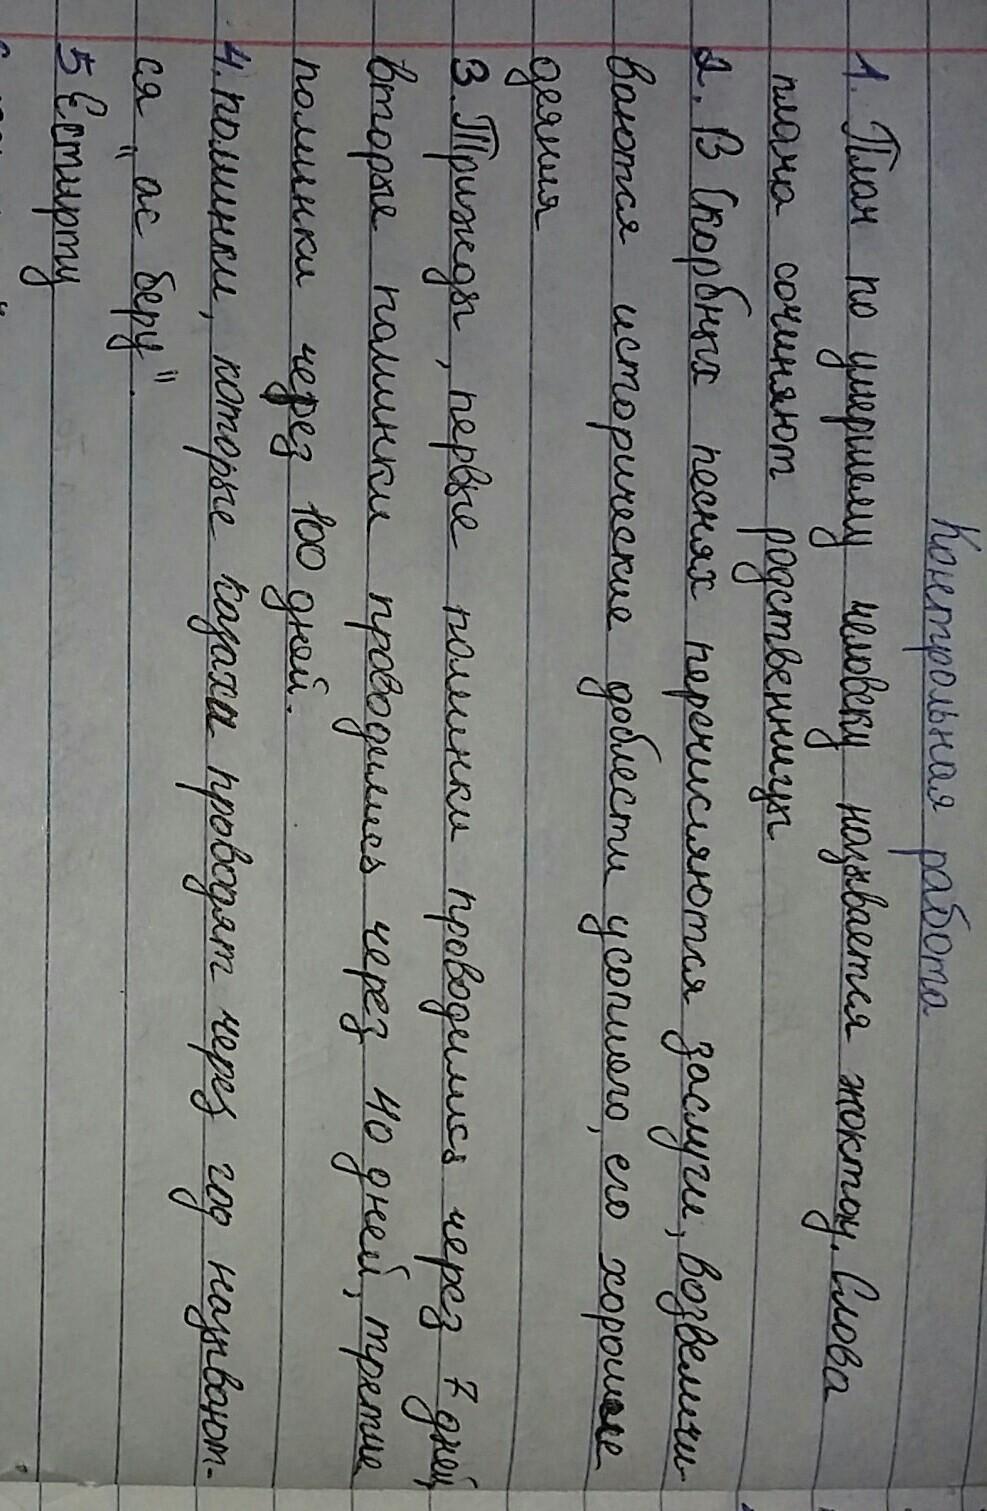 Контрольная работа
1. Плач по умершему человеку называется жоктоу. Слова
плача сочиняют родственницы
2. В скорбных песнях перечисляются заслуги, возвеличи-
ваются исторические доблести усопшего, его хорошие
деяния
3. Трижды, первые поминки проводились через 7 дней,
вторые поминки проводились через 40 дней, третие
поминки через 100 дней.
4. поминки, которые казахи проводят через год называют-
ся "ас беру".
5 Естирту